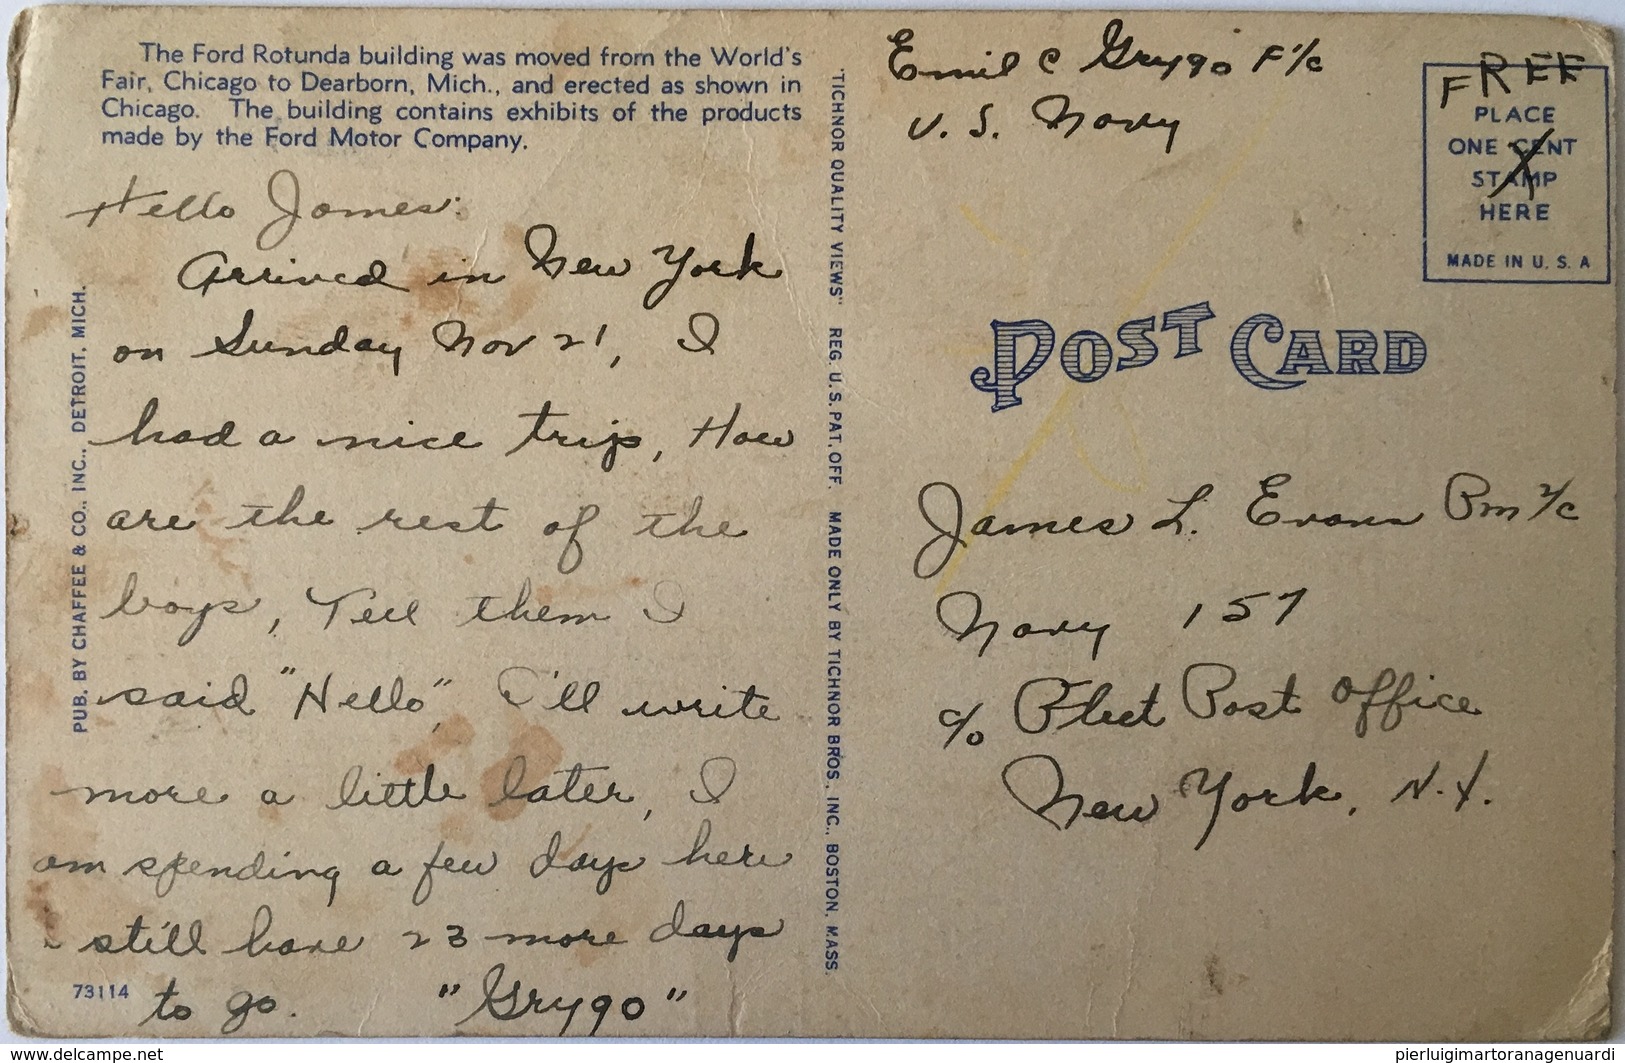 The Ford Rotunda building was moved from the World's
Fair, Chicago to Dearborn, Mich., and erected as shown in
Chicago. The building contains exhibits of the products
made by the Ford Motor Company.
Hello James:
Arrived in New York
on Sunday Nov 21, I
had a nice trip, How
are the rest of the
boys, Tell them I
said "Hello", I'll write
more a little later, I
am spending a few days here
still have 23 more days
to go. "Grygo"
73114
PUB. BY CHAFFEE & CO., INC., DETROIT, MICH.
"TICHNOR QUALITY VIEWS" REG. U. S. PAT. OFF. MADE ONLY BY TICHNOR BROS., INC., BOSTON, MASS.
Emil C Grygo F1/c
U. S. Navy
FREE
PLACE
ONE CENT
STAMP
HERE
MADE IN U. S. A
POST CARD
James L. Evans Bm 2/c
Navy 157
c/o Fleet Post Office
New York, N.Y.
www.delcampe.net
pierluigimartoranagenuardi